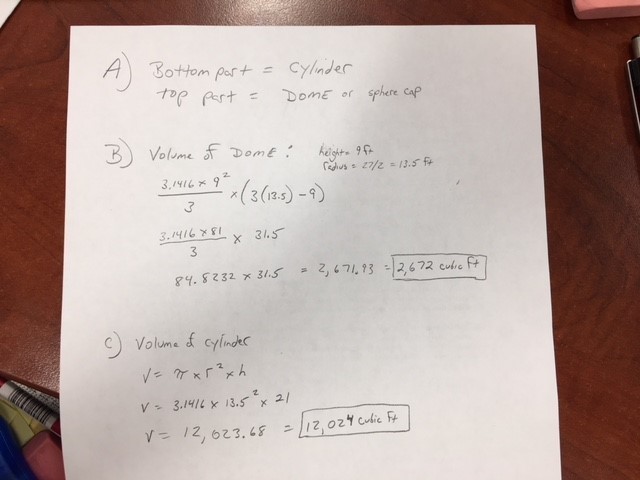 A) Bottom part = Cylinder
top part = DOME or sphere cap
B) Volume of DOME: height = 9 ft
radius = 27/2 = 13.5 ft
3.1416 × 9² / 3 × (3(13.5) - 9)
3.1416 × 81 / 3 × 31.5
84.8232 × 31.5 = 2,671.93 = 2,672 cubic ft
C) Volume of cylinder
V = π × r² × h
V = 3.1416 × 13.5² × 21
V = 12,023.68 = 12,024 cubic ft